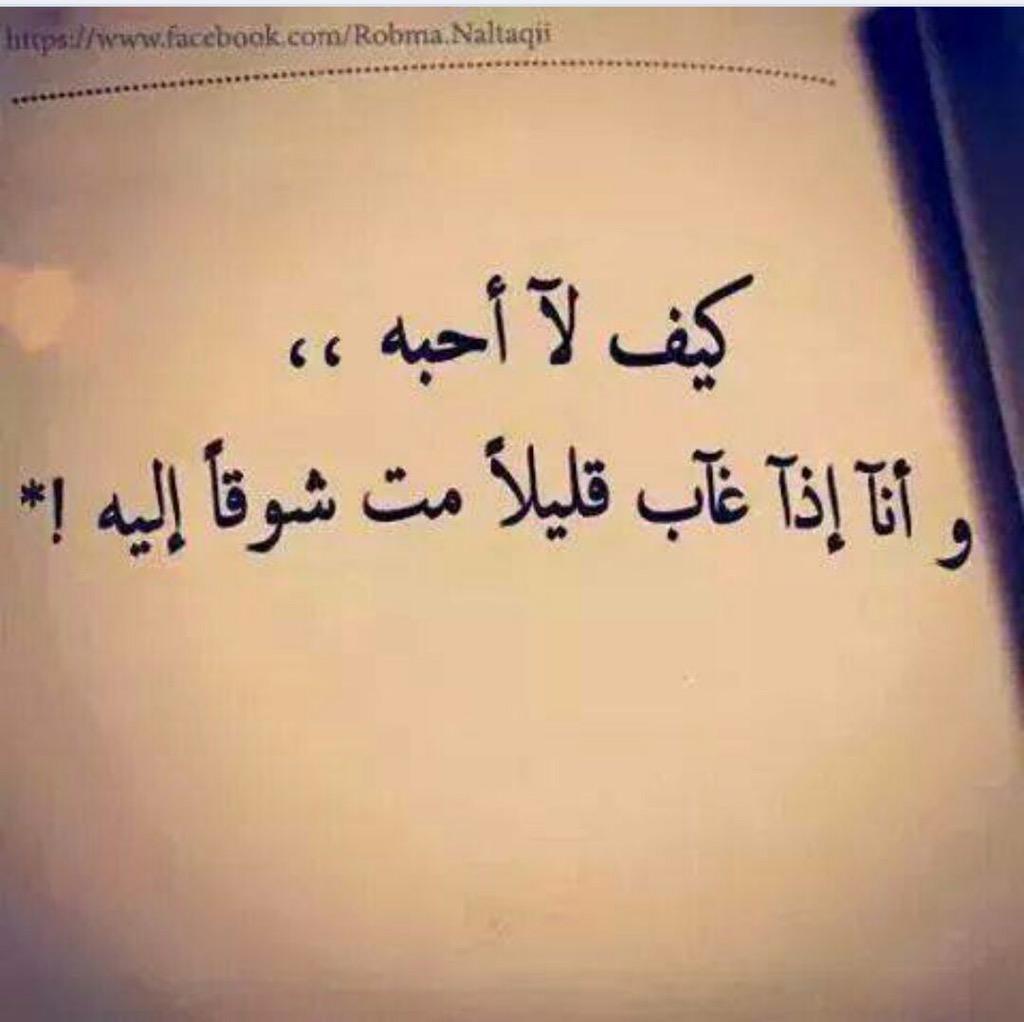 https://www.facebook.com/Robma.Naltaqii
كيف لآ أحبه ،،
و أنآ إذآ غآب قليلاً مت شوقاً إليه !*